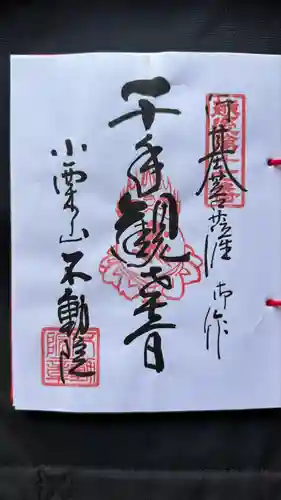 行基菩薩御作
千手観世音
小栗山不動院